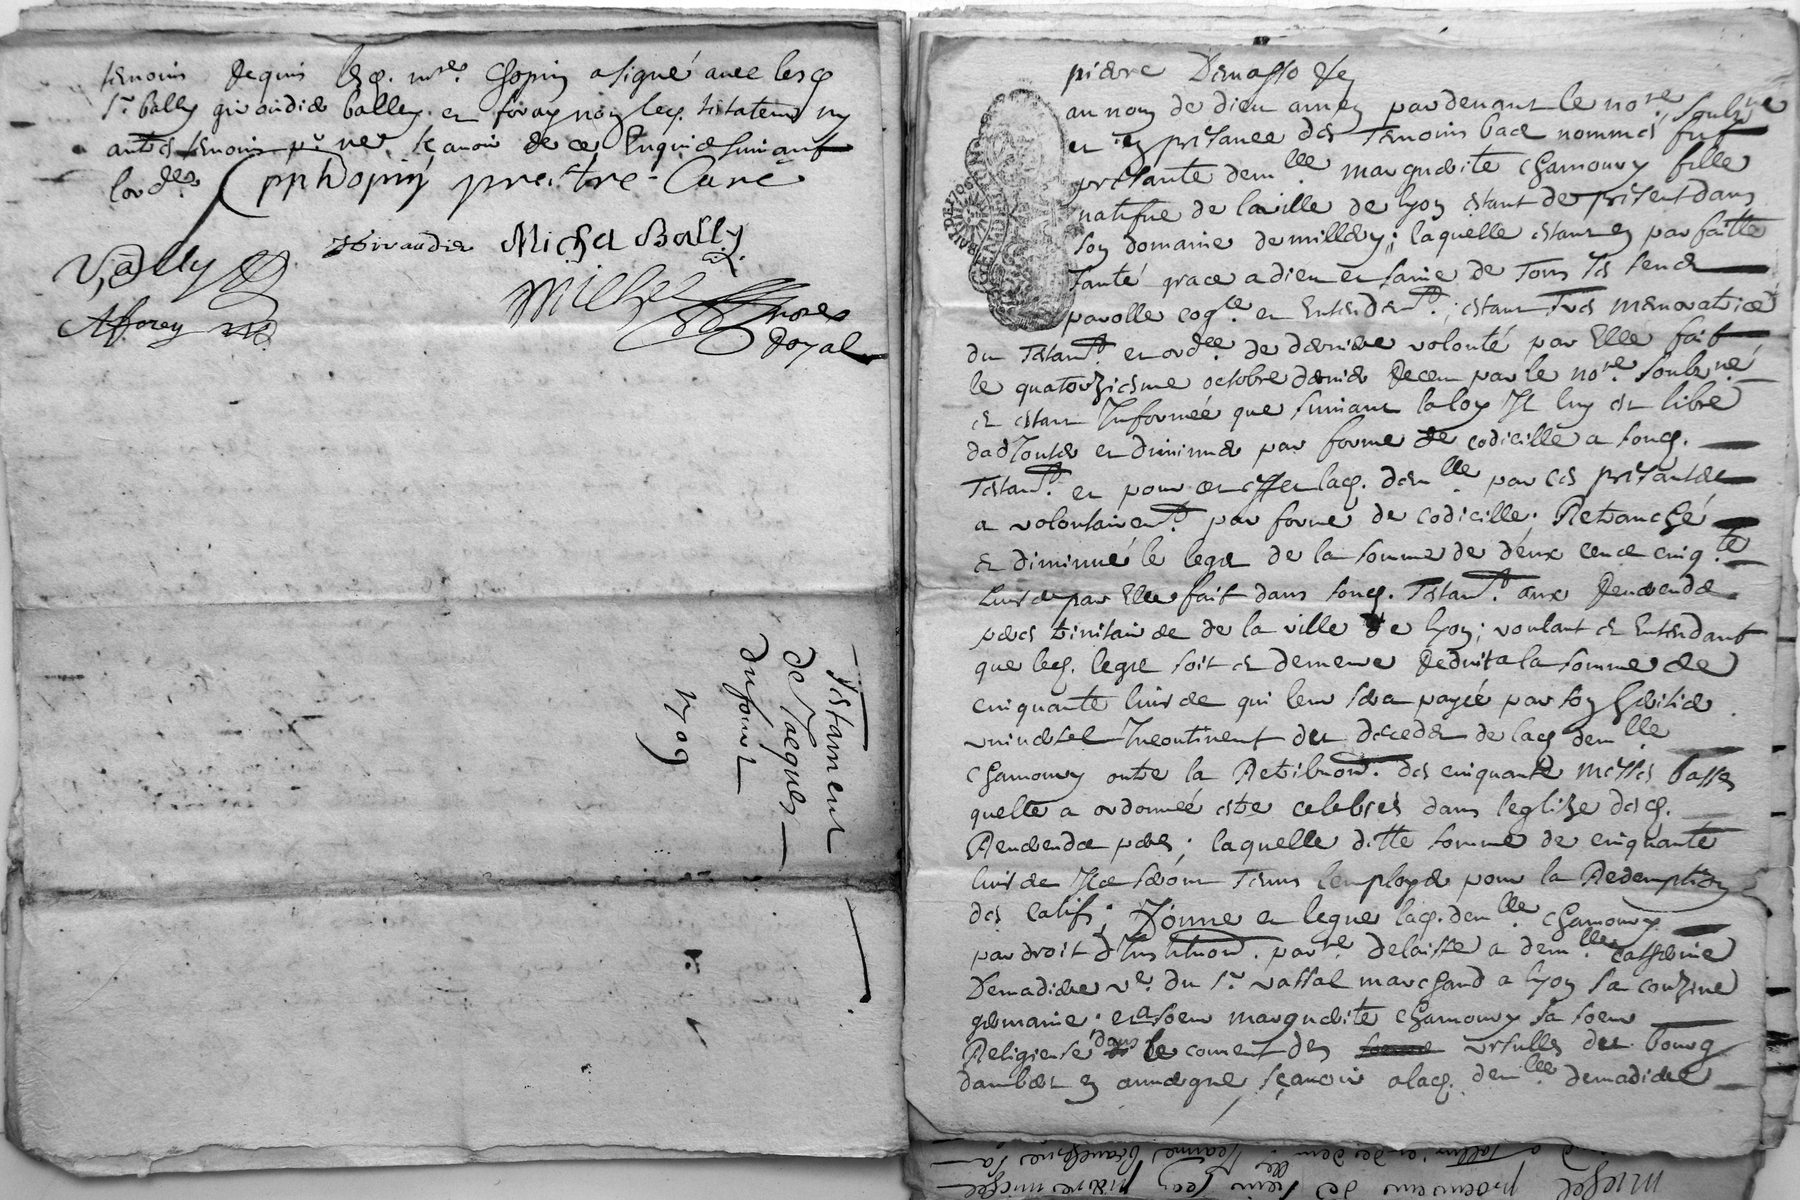 temoins de quis led. mre. Chopin a signé avec lesd
Sr bally giraudier balley et foray non led. testateur ny
autres temoins pr ne sçavoir de ce Enquis suivant
lordce
pphopin prestre Curé
Vally
JGiraudier
Michel Bally
AfForey
Michel
nore
Royal
Testament
de Jacques
dufour
1709
pierre Demasso
au nom de dieu amen pardevant le nore soubzné
et en presance des temoins bas nommés fut
presante demlle marguerite Chamouvy fille
natifue de la ville de lyon estant de present dans
son domaine de millery; laquelle estant en parfaitte
santé grace a dieu et saine de tous ses sens
parolle cogce et Entendemt; estant tres memorative
du testamt et ordce de derniere volonté par Elle fait
le quatorziesme octobre dernier Receu par le nore soubzné
et estant Informée que suivant la loy Il luy est libre
dadjouter et diminuer par forme de codicille a soud.
testamt. et pour cet effet lad. demlle par ces presantes
a volontairemt par forme de codicille; Retranché
et diminué le legs de la somme de deux cens cinqte
livres par Elle fait dans soud. testamt aux Reverends
peres trinitaires de la ville de lyon; voulant et Entendant
que led. legs soit et demeure Reduit a la somme de
cinquante livres qui leur sera payée par son heritier
universel Incontinent son deceds de lad demlle
Chamouvy outre la Retribuon. des cinquante messes basses
quelle a ordonneé estre celebrés dans leglise desd.
Reverends peres; laquelle ditte somme de cinquante
livres Ils seront tenus Employer pour la Redemption
des catifs; Donne et legue lad. demlle Chamouvy
par droit d'Instituon. parre delaisse a demlle catherine
Demadiere ve. du Sr. vassal marchand a lyon sa couzine
germaine; et a soeur marguerite Chamouvy sa soeur
Religieuse dans le couvent des ursulles du bourg
dambert en auvergne, sçavoir a lad. demlle demadiere